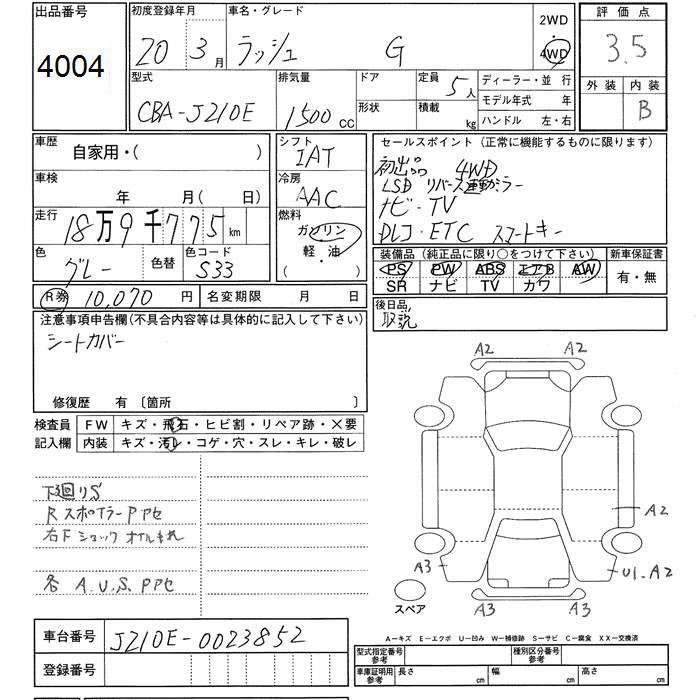 出品番号
4004
初度登録年月
20 3月
車名・グレード
ラッシュ G
2WD
4WD
評価点
3.5
外装 内装
B
型式
CBA-J210E
排気量
1500cc
ドア
形状
定員
5人
積載
kg
ディーラー・並 行
モデル年式 年
ハンドル 左・右
車歴
自家用・( )
車検
年 月( 日)
走行
18万9千775km
色
グレー
色替
色コード
S33
R券 10,070円
名変期限 月 日
シフト
IAT
冷房
AAC
燃料
ガソリン
軽・油
セールスポイント(正常に機能するものに限ります)
初出品 4WD
LSD リバース連動ミラー
ナビ・TV
ETC スマートキー
装備品(純正品に限り○をつけて下さい)
PS PW ABS エアB AW
SR ナビ TV カワ
新車保証書
有・無
後日品
取説
注意事項申告欄(不具合内容等は具体的に記入して下さい)
シートカバー
修復歴 有 〔箇所 〕
検査員
記入欄
FW キズ・飛石・ヒビ割・リペア跡・×要
内装 キズ・汚レ・コゲ・穴・スレ・キレ・破レ
下廻りS
RスポイラーPアセ
右Fショック オイルもれ
各 A.U.S. Pアセ
A2 A2
A2
A3 U1.A2
スペア
A3 A3
車台番号 J210E-0023852
登録番号
A―キズ E―エクボ U―凹み W―補修跡 S―サビ C―腐食 XX―交換済
型式指定番号
参考
種別区分番号
参考
車庫証明用
参考
長さ cm 幅 cm 高さ cm